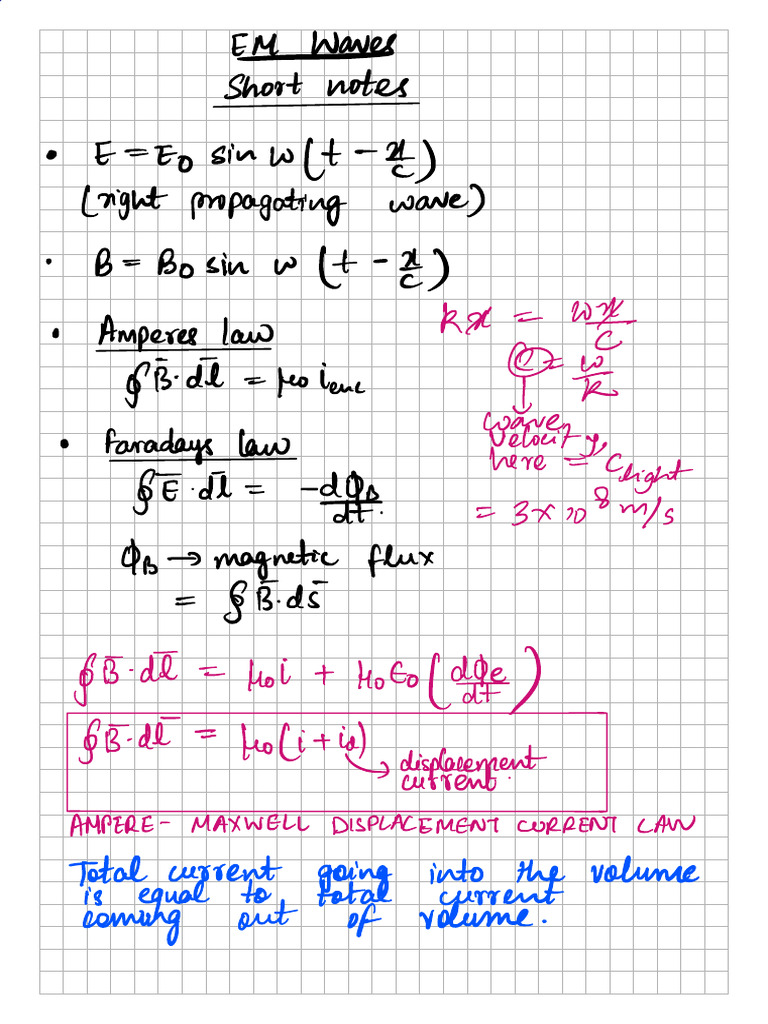 EM Waves
Short notes
• E = E₀ sin ω(t - x/c)
(right propagating wave)
• B = B₀ sin ω (t - x/c)
kx = ωx/c
• Amperes law
c = ω/k
∮B̄·dl̄ = μ₀ i_enc
wave velocity, here = c_light
= 3×10⁸ m/s
• Faradays law
∮Ē·dl̄ = -dϕ_B/dt.
ϕ_B → magnetic flux
= ∮B̄·ds̄
∮B̄·dl̄ = μ₀i + μ₀ε₀(dϕe/dt)
∮B̄·dl̄ = μ₀(i + i_d)
→ displacement
current.
AMPERE- MAXWELL DISPLACEMENT CURRENT LAW
Total current going into the volume
is equal to total current
coming out of volume.